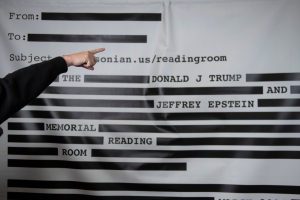 From:
To:
Subject sonian.us/readingroom
THE DONALD J TRUMP
AND
JEFFREY EPSTEIN
MEMORIAL
READING
ROOM